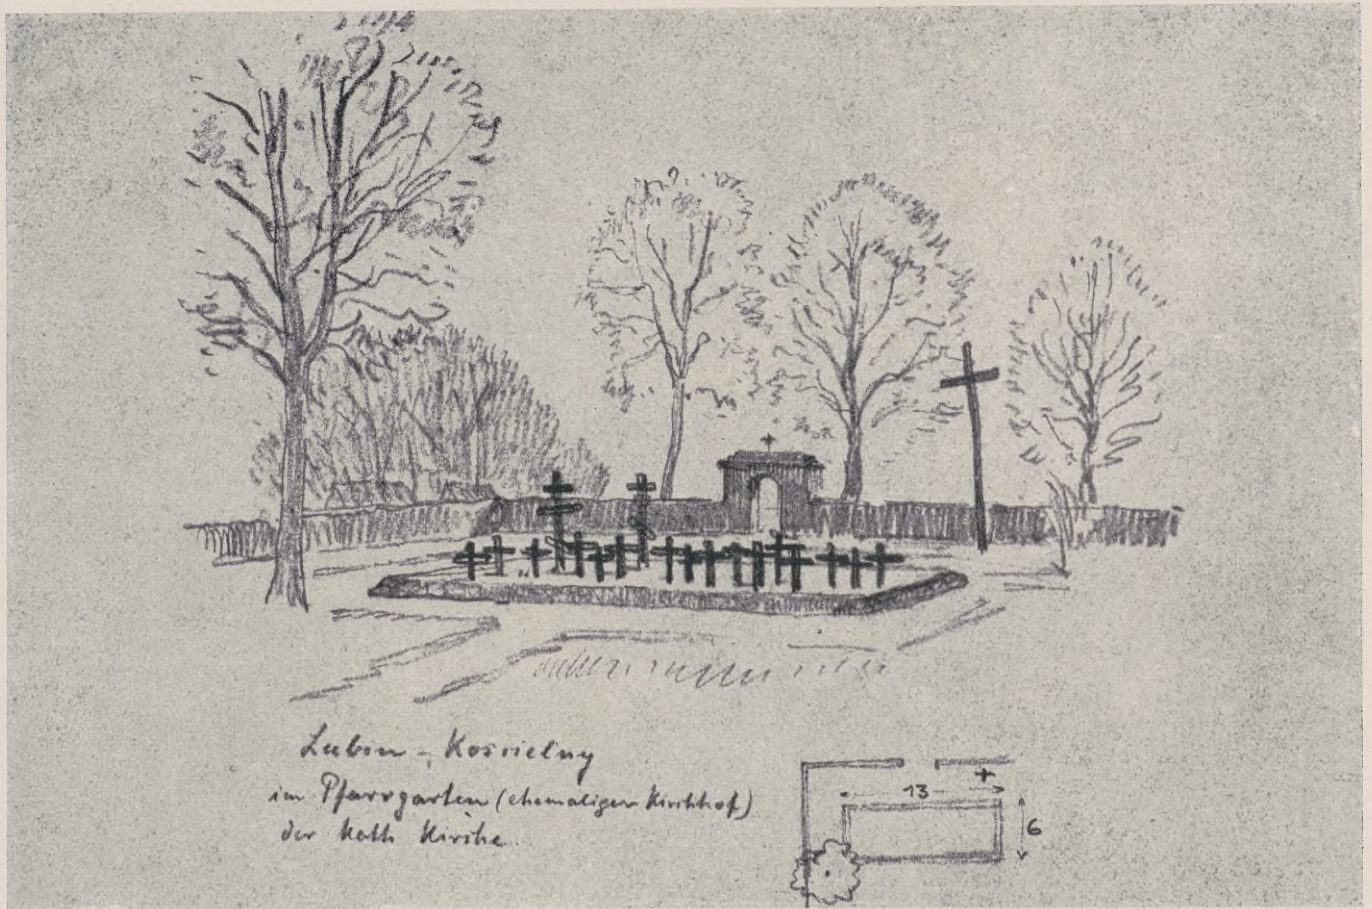 Lubin - Kościelny
im Pfarrgarten (ehemaliger Kirchhof)
der Kath Kirche
13
6